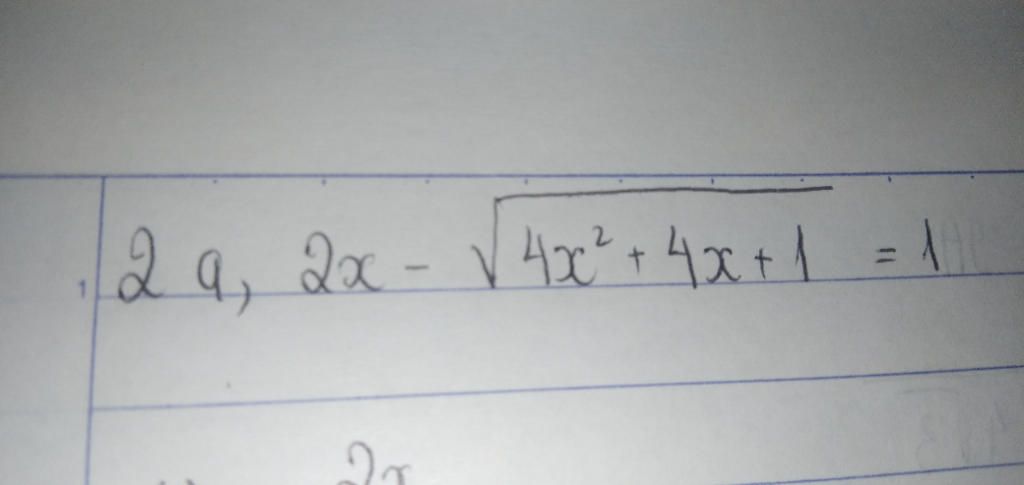 2 a, 2x - √(4x² + 4x + 1) = 1
2x